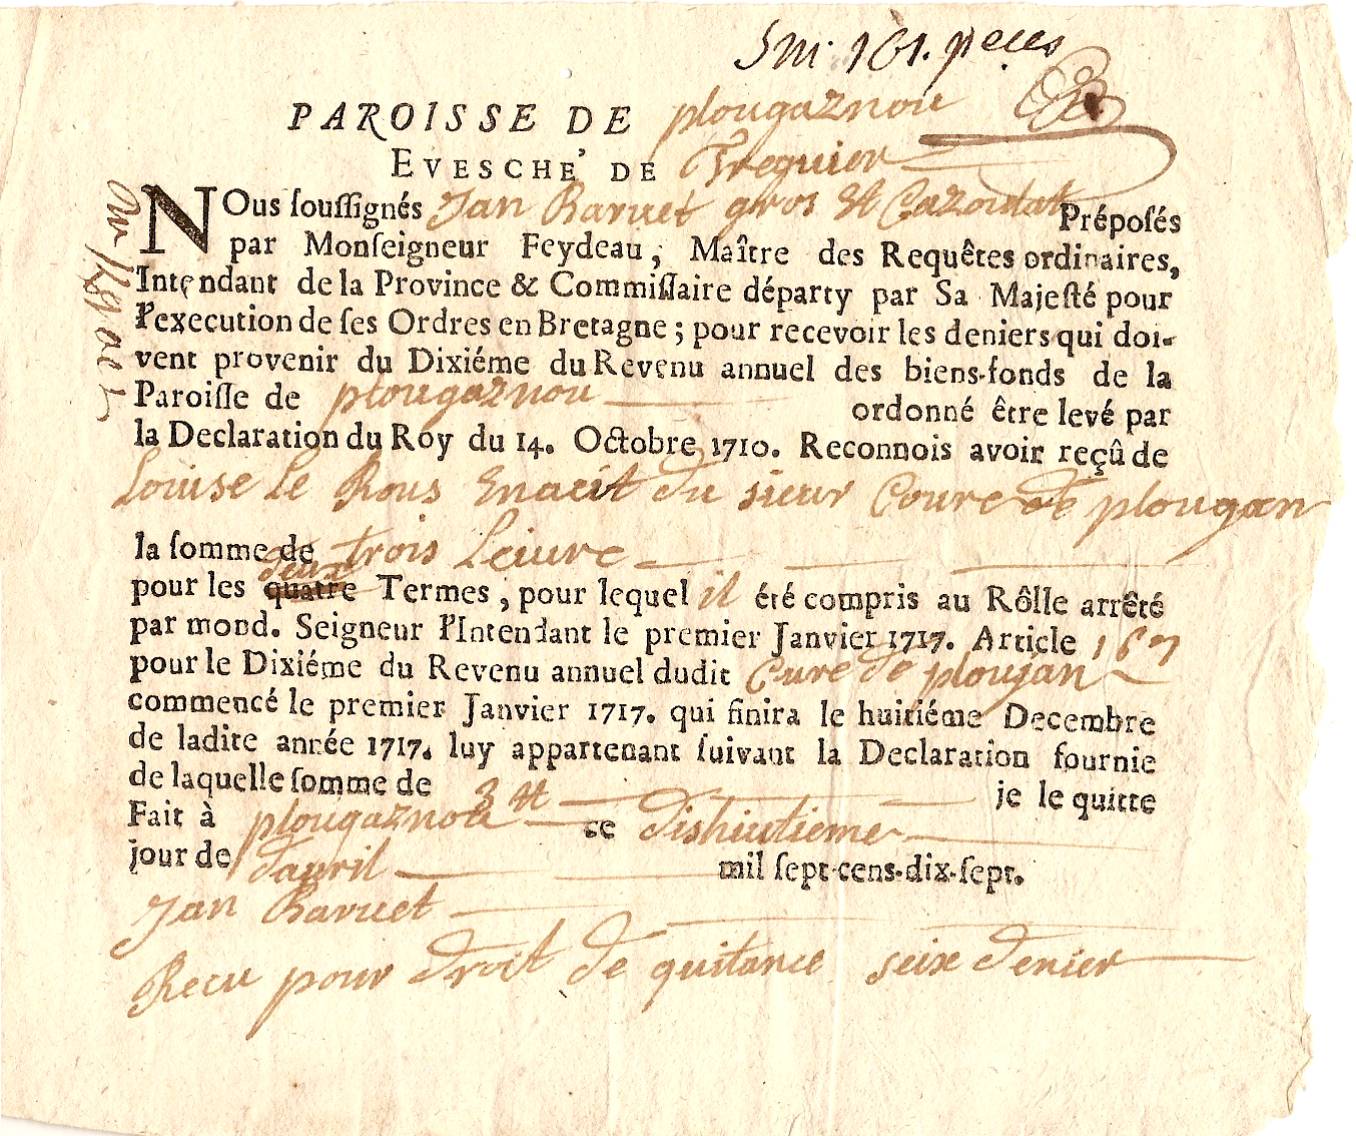 161. peces
PAROISSE DE plougaznou
EVESCHE' DE Treguier
NOus soussignés Jan Baruet gros Et Cazoulat Préposés
par Monseigneur Feydeau, Maître des Requêtes ordinaires,
Intendant de la Province & Commissaire départy par Sa Majesté pour
l'execution de ses Ordres en Bretagne ; pour recevoir les deniers qui doi-
vent provenir du Dixiéme du Revenu annuel des biens-fonds de la
Paroisse de plougaznou ordonné être levé par
la Declaration du Roy du 14. Octobre 1710. Reconnois avoir reçû de
Louise Le Rous Enacit du sieur Coure de plougan
la somme de trois Leiure
deux
pour les quatre Termes, pour lequel il été compris au Rôlle arrêté
par mond. Seigneur l'Intendant le premier Janvier 1717. Article 167
pour le Dixiéme du Revenu annuel dudit Cure de ploujan
commencé le premier Janvier 1717. qui finira le huitiéme Decembre
de ladite année 1717. luy appartenant suivant la Declaration fournie
de laquelle somme de 3 tt je le quitte
Fait à plougaznou ce dishiutieme
jour de dauril mil sept-cens-dix-sept.
Jan Baruet
Recu pour droit de quitance seix denier